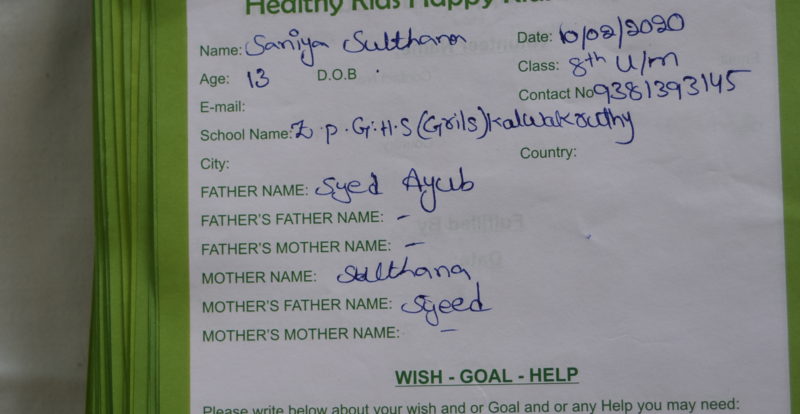 Healthy Kids Happy
Name: Saniya Sulthana Date: 10/02/2020
Age: 13 D.O.B Class: 8th U/m
E-mail: Contact No 9381393145
School Name: Z.P.G.H.S (Grils) Kalwakruthy
City: Country:
FATHER NAME: Syed Ayub
FATHER'S FATHER NAME: -
FATHER'S MOTHER NAME: -
MOTHER NAME: Sulthana
MOTHER'S FATHER NAME: Syeed
MOTHER'S MOTHER NAME: -
WISH - GOAL - HELP
Please write below about your wish and or Goal and or any Help you may need: